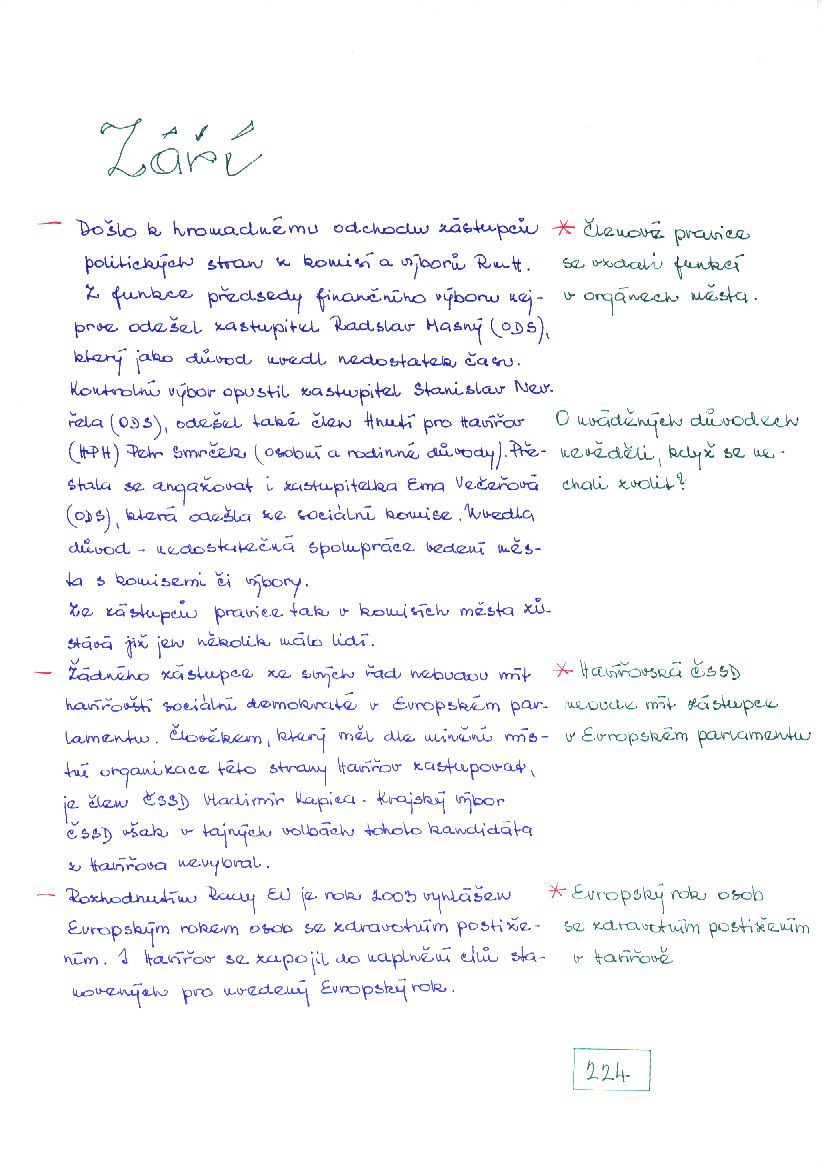 Září
— Došlo k hromadnému odchodu zástupců
politických stran z komisí a výborů RMH.
Z funkce předsedy finančního výboru nej-
prve odešel zastupitel Radslav Masný (ODS),
který jako důvod uvedl nedostatek času.
Kontrolní výbor opustil zastupitel Stanislav Nev-
řela (ODS), odešel také člen Hnutí pro Havířov
(HPH) Petr Smrček (osobní a rodinné důvody). Pře-
stala se angažovat i zastupitelka Ema Večeřová
(ODS), která odešla ze sociální komise. Uvedla
důvod - nedostatečná spolupráce vedení měs-
ta s komisemi či výbory.
Ze zástupců pravice tak v komisích města zů-
stává již jen několik málo lidí.
— Žádného zástupce ze svých řad nebudou mít
havířovští sociální demokraté v Evropském par-
lamentu. Člověkem, který měl dle mínění míst-
ní organizace této strany Havířov zastupovat,
je člen ČSSD Vladimír Kapica. Krajský výbor
ČSSD však v tajných volbách tohoto kandidáta
z Havířova nevybral.
— Rozhodnutím Rady EU je rok 2003 vyhlášen
Evropským rokem osob se zdravotním postiže-
ním. I Havířov se zapojil do naplnění cílů sta-
novených pro uvedený Evropský rok.
* Členové pravice
se vzdali funkcí
v orgánech města.
O uváděných důvodech
nevěděli, když se ne-
chali zvolit?
* Havířovská ČSSD
nebude mít zástupce
v Evropském parlamentu
* Evropský rok osob
se zdravotním postižením
v Havířově
224